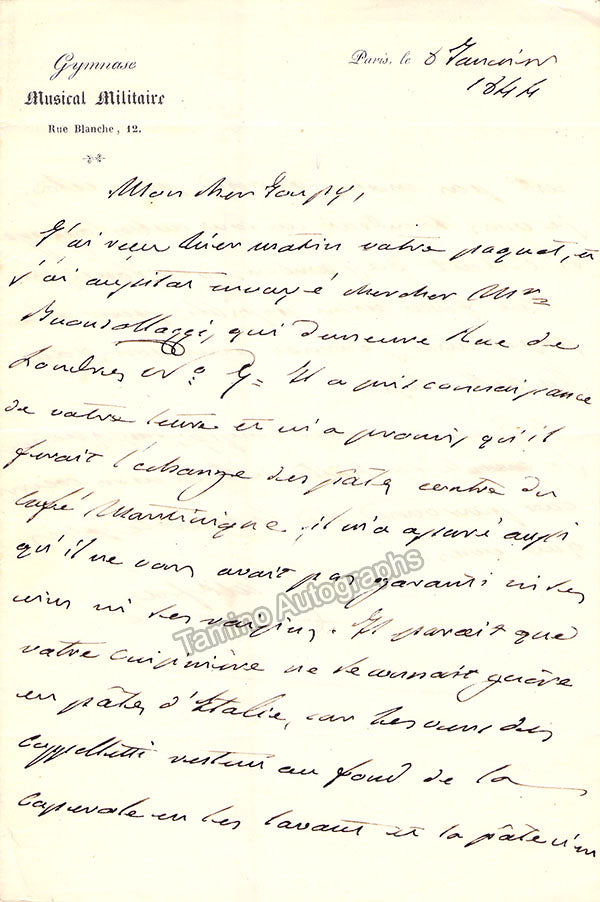 Gymnase
Musical Militaire
Rue Blanche, 12.
Paris, le 8 Janvier
1844
Mon cher Goupy,
J'ai reçu hier matin votre paquet, et
j'ai aussitôt envoyé chercher Mr
qui demeure Rue de
Londres No 9= Il a pris connaissance
de votre lettre et m'a promis qu'il
ferait l'échange des pâtes contre du
Café Martinique, il m'a assuré aussi
qu'il ne vous avait pas garanti ni les
vins ni les. Il paraît que
votre cuisinière ne se connait guère
en pâtes d'Italie, car les vers des
cappelletti restent au fond de la
casserole en les lavant et la pâte n'en
Tamino Autographs